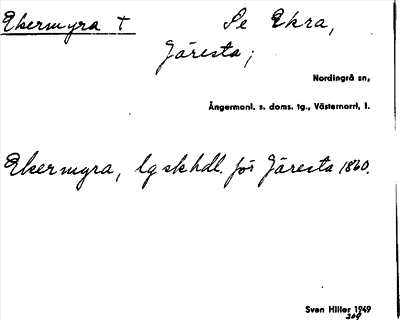 Ekermyra † Se Ekra,
Järesta;
Nordingrå sn,
Ångermanl. s. doms. tg., Västernorrl, l.
Ekermyra, lgskhdl. för Järesta 1860.
Sven Hiller 1949
309